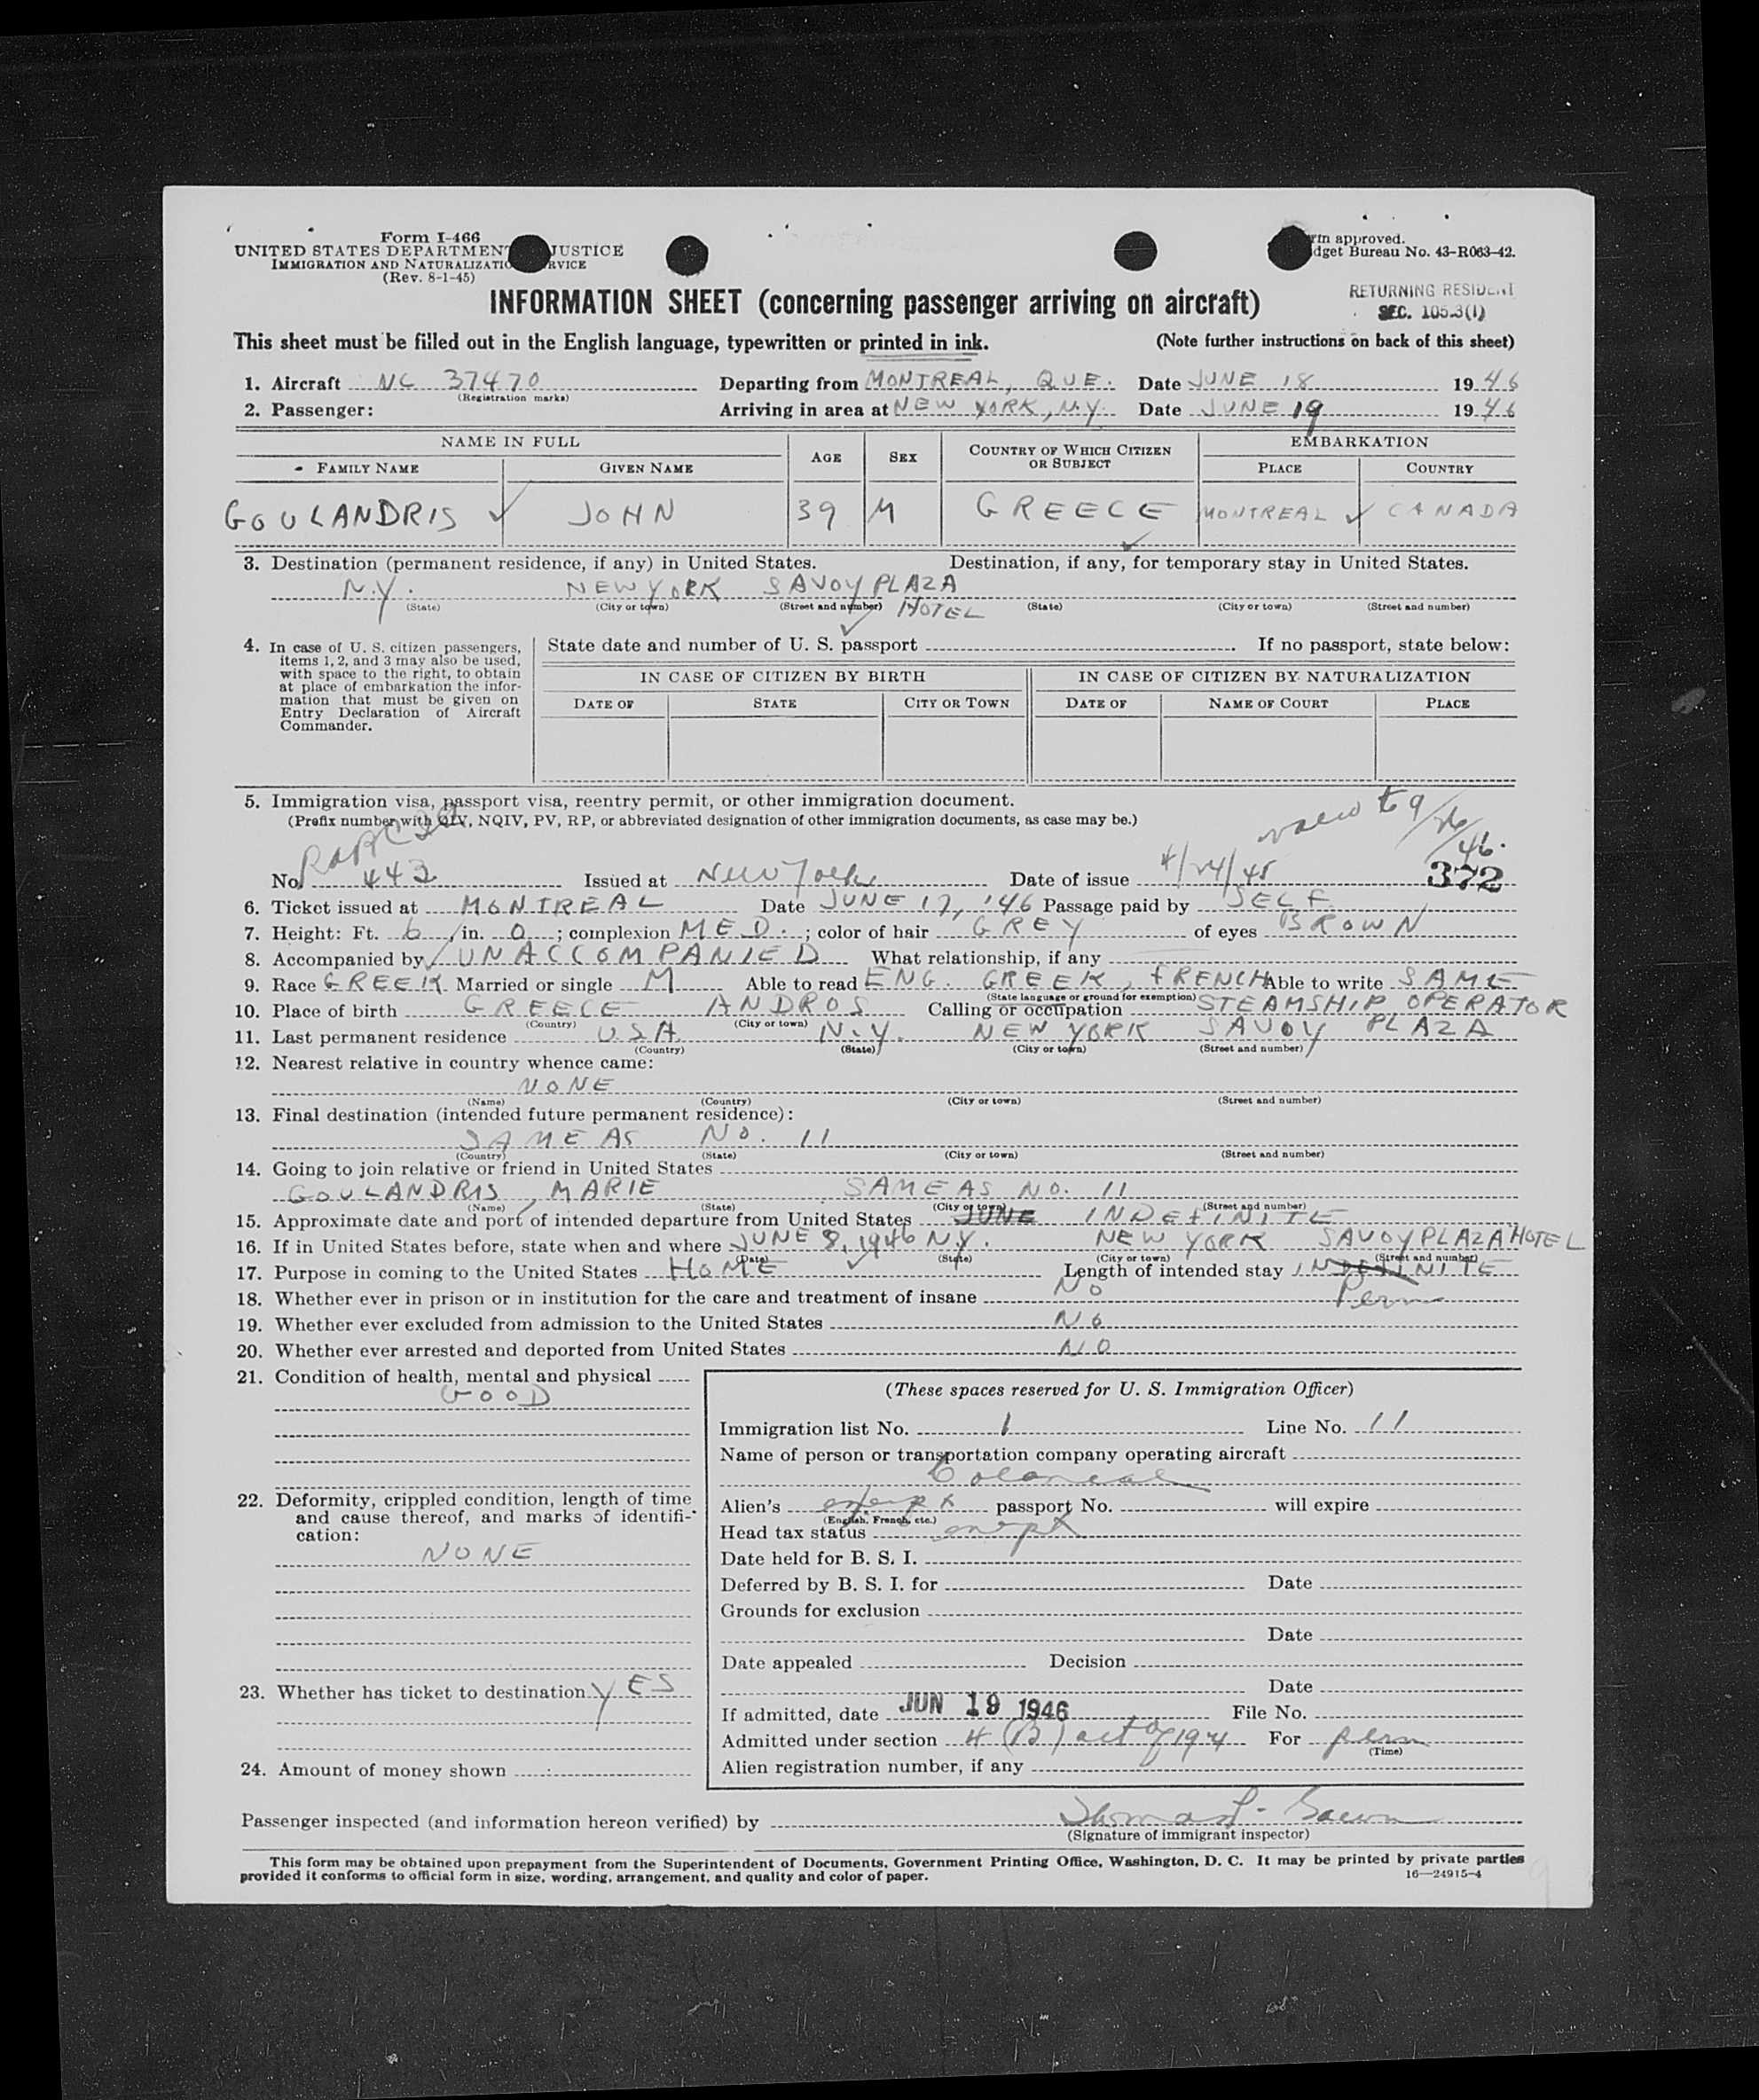 Form I-466
UNITED STATES DEPARTMENT JUSTICE
IMMIGRATION AND NATURALIZATIO RVICE
(Rev. 8-1-45)
rm approved.
dget Bureau No. 43-R063-42.
INFORMATION SHEET (concerning passenger arriving on aircraft)
RETURNING RESIDENT
SEC. 105.3(1)
This sheet must be filled out in the English language, typewritten or printed in ink. (Note further instructions on back of this sheet)
1. Aircraft NC 37470 Departing from MONTREAL, QUE. Date JUNE 18 1946
(Registration marks)
2. Passenger: Arriving in area at NEW YORK, N.Y. Date JUNE 19 1946
NAME IN FULL AGE SEX COUNTRY OF WHICH CITIZEN OR SUBJECT EMBARKATION
FAMILY NAME GIVEN NAME PLACE COUNTRY
GOULANDRIS ✓ JOHN 39 M GREECE ✓ MONTREAL ✓ CANADA
3. Destination (permanent residence, if any) in United States. Destination, if any, for temporary stay in United States.
N.Y. NEW YORK SAVOY PLAZA
HOTEL
(State) (City or town) (Street and number) (State) (City or town) (Street and number)
4. In case of U. S. citizen passengers, items 1, 2, and 3 may also be used, with space to the right, to obtain at place of embarkation the information that must be given on Entry Declaration of Aircraft Commander.
State date and number of U. S. passport If no passport, state below:
IN CASE OF CITIZEN BY BIRTH IN CASE OF CITIZEN BY NATURALIZATION
DATE OF STATE CITY OR TOWN DATE OF NAME OF COURT PLACE
5. Immigration visa, passport visa, reentry permit, or other immigration document.
(Prefix number with QIV, NQIV, PV, RP, or abbreviated designation of other immigration documents, as case may be.)
to 9/26/46.
No. 442 Issued at New York Date of issue 4/24/45 372
6. Ticket issued at MONTREAL Date JUNE 17, '46 Passage paid by SELF
7. Height: Ft. 6, in. 0; complexion MED.; color of hair GREY of eyes BROWN
8. Accompanied by UNACCOMPANIED What relationship, if any
9. Race GREEK Married or single M Able to read ENG. GREEK, FRENCH Able to write SAME
(State language or ground for exemption)
10. Place of birth GREECE ANDROS Calling or occupation STEAMSHIP OPERATOR
(Country) (City or town)
11. Last permanent residence USA N.Y. NEW YORK SAVOY PLAZA
(Country) (State) (City or town) (Street and number)
12. Nearest relative in country whence came:
NONE
(Name) (Country) (City or town) (Street and number)
13. Final destination (intended future permanent residence):
SAME AS NO. 11
(Country) (State) (City or town) (Street and number)
14. Going to join relative or friend in United States
GOULANDRIS, MARIE SAME AS NO. 11
(Name) (State) (City or town) (Street and number)
15. Approximate date and port of intended departure from United States JUNE INDEFINITE
16. If in United States before, state when and where JUNE 8, 1946 N.Y. NEW YORK SAVOY PLAZA HOTEL
(Date) (State) (City or town) (Street and number)
17. Purpose in coming to the United States HOME Length of intended stay INDEFINITE
Perm
18. Whether ever in prison or in institution for the care and treatment of insane NO
19. Whether ever excluded from admission to the United States NO
20. Whether ever arrested and deported from United States NO
21. Condition of health, mental and physical
GOOD
22. Deformity, crippled condition, length of time and cause thereof, and marks of identification:
NONE
23. Whether has ticket to destination YES
24. Amount of money shown
(These spaces reserved for U. S. Immigration Officer)
Immigration list No. 1 Line No. 11
Name of person or transportation company operating aircraft
Colonial
Alien's exempt passport No. will expire
(English, French, etc.)
Head tax status exempt
Date held for B. S. I.
Deferred by B. S. I. for Date
Grounds for exclusion
Date
Date appealed Decision
Date
If admitted, date JUN 19 1946 File No.
Admitted under section 4 (B) act of 1924 For perm
(Time)
Alien registration number, if any
Passenger inspected (and information hereon verified) by
(Signature of immigrant inspector)
This form may be obtained upon prepayment from the Superintendent of Documents, Government Printing Office, Washington, D. C. It may be printed by private parties
provided it conforms to official form in size, wording, arrangement, and quality and color of paper. 16—24915-4